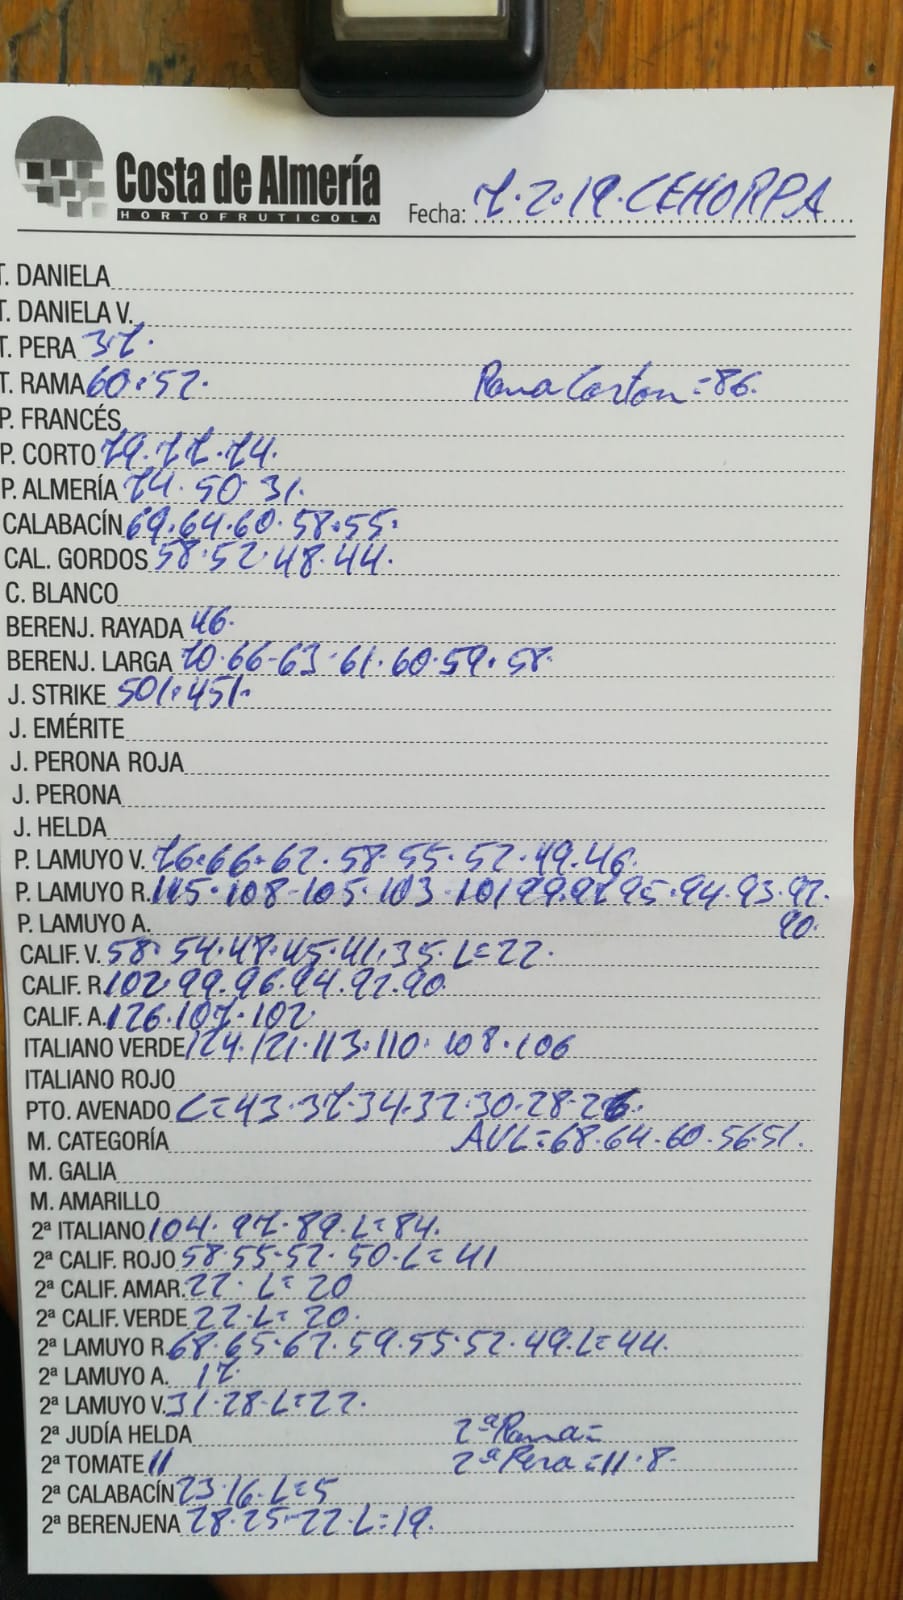 Costa de Almería
HORTOFRUTICOLA
Fecha: 7.2.19.CEHORPA
T. DANIELA
T. DANIELA V.
T. PERA 37.
T. RAMA 60.52. Rama Carton=86.
P. FRANCÉS
P. CORTO 79.77.74.
P. ALMERÍA 74.50.31.
CALABACÍN 69.64.60.58.55.
CAL. GORDOS 58.52.48.44.
C. BLANCO
BERENJ. RAYADA 46.
BERENJ. LARGA 70.66-63.61.60.59.58.
J. STRIKE 501.451.
J. EMÉRITE
J. PERONA ROJA
J. PERONA
J. HELDA
P. LAMUYO V. 76.66.62.58.55.52.49.46.
P. LAMUYO R. 115.108-105.103-101 99.97 95.94.93.92.
P. LAMUYO A. 90.
CALIF. V. 58.54.47.45.41.35.L=22.
CALIF. R. 102 99.96.94.92.90.
CALIF. A. 126.107.102.
ITALIANO VERDE 124.121.113.110.108.106
ITALIANO ROJO
PTO. AVENADO L=43.37.34.32.30.28.26.
M. CATEGORÍA AVL=68.64.60.56.51.
M. GALIA
M. AMARILLO
2ª ITALIANO 104.97.89.L=84.
2ª CALIF. ROJO 58.55.52.50.L=41
2ª CALIF. AMAR. 22. L=20
2ª CALIF. VERDE 22.L=20.
2ª LAMUYO R. 68.65.62.59.55.52.49.L=44.
2ª LAMUYO A. 17
2ª LAMUYO V. 31.28.L=22.
2ª JUDÍA HELDA 2ªRama=
2ª TOMATE 11 2ªPera=11.8.
2ª CALABACÍN 23.16.L=5
2ª BERENJENA 28.25-22.L=19.